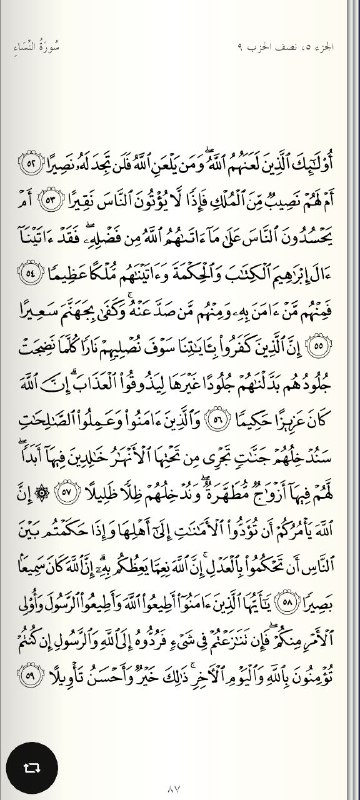 الجزء ٥، نصف الحزب ٩
سُورَةُ النِّسَاءِ
أُو۟لَٰٓئِكَ ٱلَّذِينَ لَعَنَهُمُ ٱللَّهُۖ وَمَن يَلْعَنِ ٱللَّهُ فَلَن تَجِدَ لَهُۥ نَصِيرًا ٥٢
أَمْ لَهُمْ نَصِيبٌ مِّنَ ٱلْمُلْكِ فَإِذًا لَّا يُؤْتُونَ ٱلنَّاسَ نَقِيرًا ٥٣ أَمْ
يَحْسُدُونَ ٱلنَّاسَ عَلَىٰ مَآ ءَاتَىٰهُمُ ٱللَّهُ مِن فَضْلِهِۦۖ فَقَدْ ءَاتَيْنَآ
ءَالَ إِبْرَٰهِيمَ ٱلْكِتَٰبَ وَٱلْحِكْمَةَ وَءَاتَيْنَٰهُم مُّلْكًا عَظِيمًا ٥٤
فَمِنْهُم مَّنْ ءَامَنَ بِهِۦ وَمِنْهُم مَّن صَدَّ عَنْهُۚ وَكَفَىٰ بِجَهَنَّمَ سَعِيرًا
٥٥ إِنَّ ٱلَّذِينَ كَفَرُوا۟ بِـَٔايَٰتِنَا سَوْفَ نُصْلِيهِمْ نَارًا كُلَّمَا نَضِجَتْ
جُلُودُهُم بَدَّلْنَٰهُمْ جُلُودًا غَيْرَهَا لِيَذُوقُوا۟ ٱلْعَذَابَۗ إِنَّ ٱللَّهَ
كَانَ عَزِيزًا حَكِيمًا ٥٦ وَٱلَّذِينَ ءَامَنُوا۟ وَعَمِلُوا۟ ٱلصَّٰلِحَٰتِ
سَنُدْخِلُهُمْ جَنَّٰتٍ تَجْرِى مِن تَحْتِهَا ٱلْأَنْهَٰرُ خَٰلِدِينَ فِيهَآ أَبَدًاۖ
لَّهُمْ فِيهَآ أَزْوَٰجٌ مُّطَهَّرَةٌۖ وَنُدْخِلُهُمْ ظِلًّا ظَلِيلًا ٥٧ ۞ إِنَّ
ٱللَّهَ يَأْمُرُكُمْ أَن تُؤَدُّوا۟ ٱلْأَمَٰنَٰتِ إِلَىٰٓ أَهْلِهَا وَإِذَا حَكَمْتُم بَيْنَ
ٱلنَّاسِ أَن تَحْكُمُوا۟ بِٱلْعَدْلِۚ إِنَّ ٱللَّهَ نِعِمَّا يَعِظُكُم بِهِۦٓۗ إِنَّ ٱللَّهَ كَانَ سَمِيعًۢا
بَصِيرًا ٥٨ يَٰٓأَيُّهَا ٱلَّذِينَ ءَامَنُوٓا۟ أَطِيعُوا۟ ٱللَّهَ وَأَطِيعُوا۟ ٱلرَّسُولَ وَأُو۟لِى
ٱلْأَمْرِ مِنكُمْۖ فَإِن تَنَٰزَعْتُمْ فِى شَىْءٍ فَرُدُّوهُ إِلَى ٱللَّهِ وَٱلرَّسُولِ إِن كُنتُمْ
تُؤْمِنُونَ بِٱللَّهِ وَٱلْيَوْمِ ٱلْـَٔاخِرِۚ ذَٰلِكَ خَيْرٌ وَأَحْسَنُ تَأْوِيلًا ٥٩
٨٧